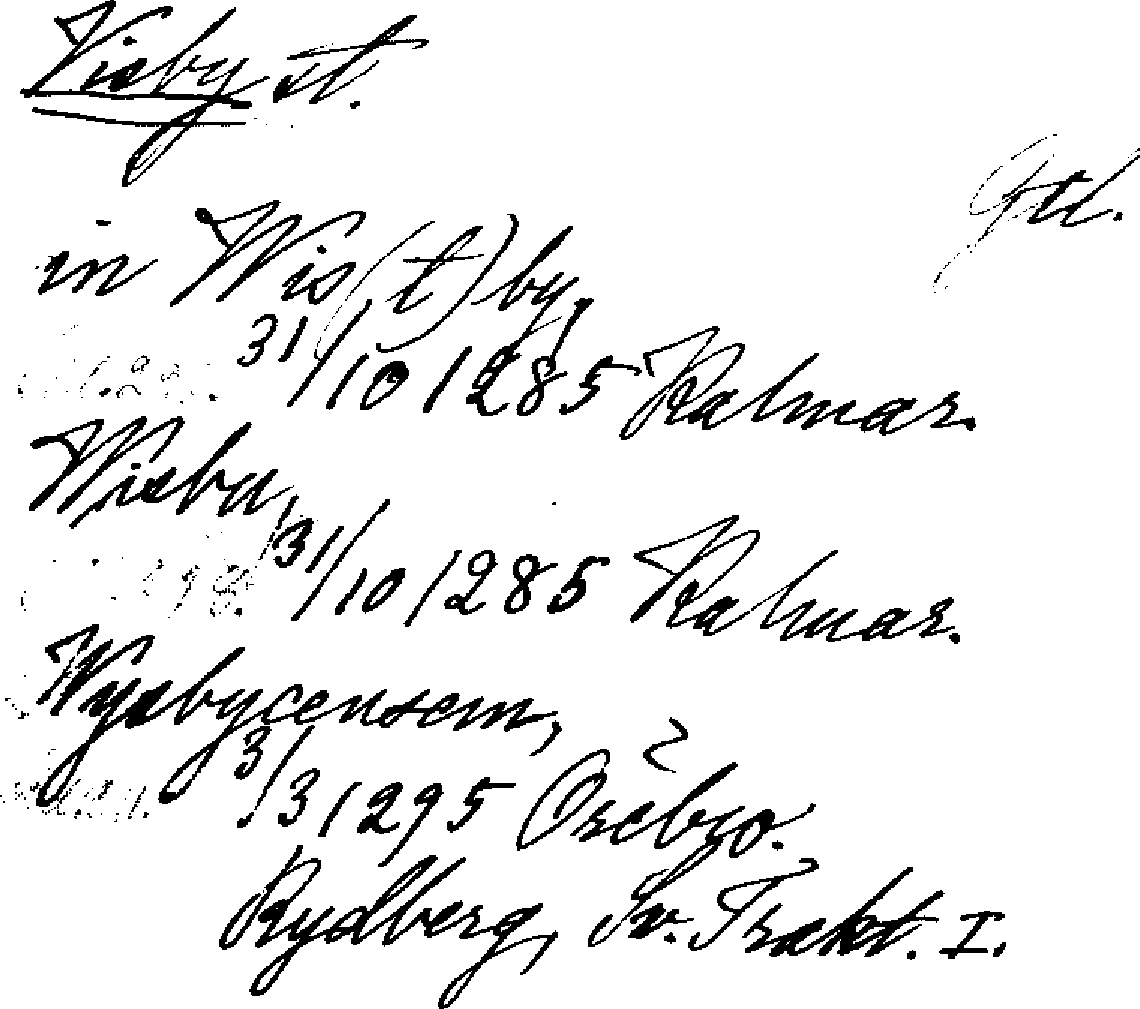 Visby st.
Gtl.
in Wis(t)by,
31/10 1285 Kalmar.
Wisbu,
31/10 1285 Kalmar.
Wysbycensem,
3/3 1295 Örebro.
Rydberg, Sv. Trakt. I.